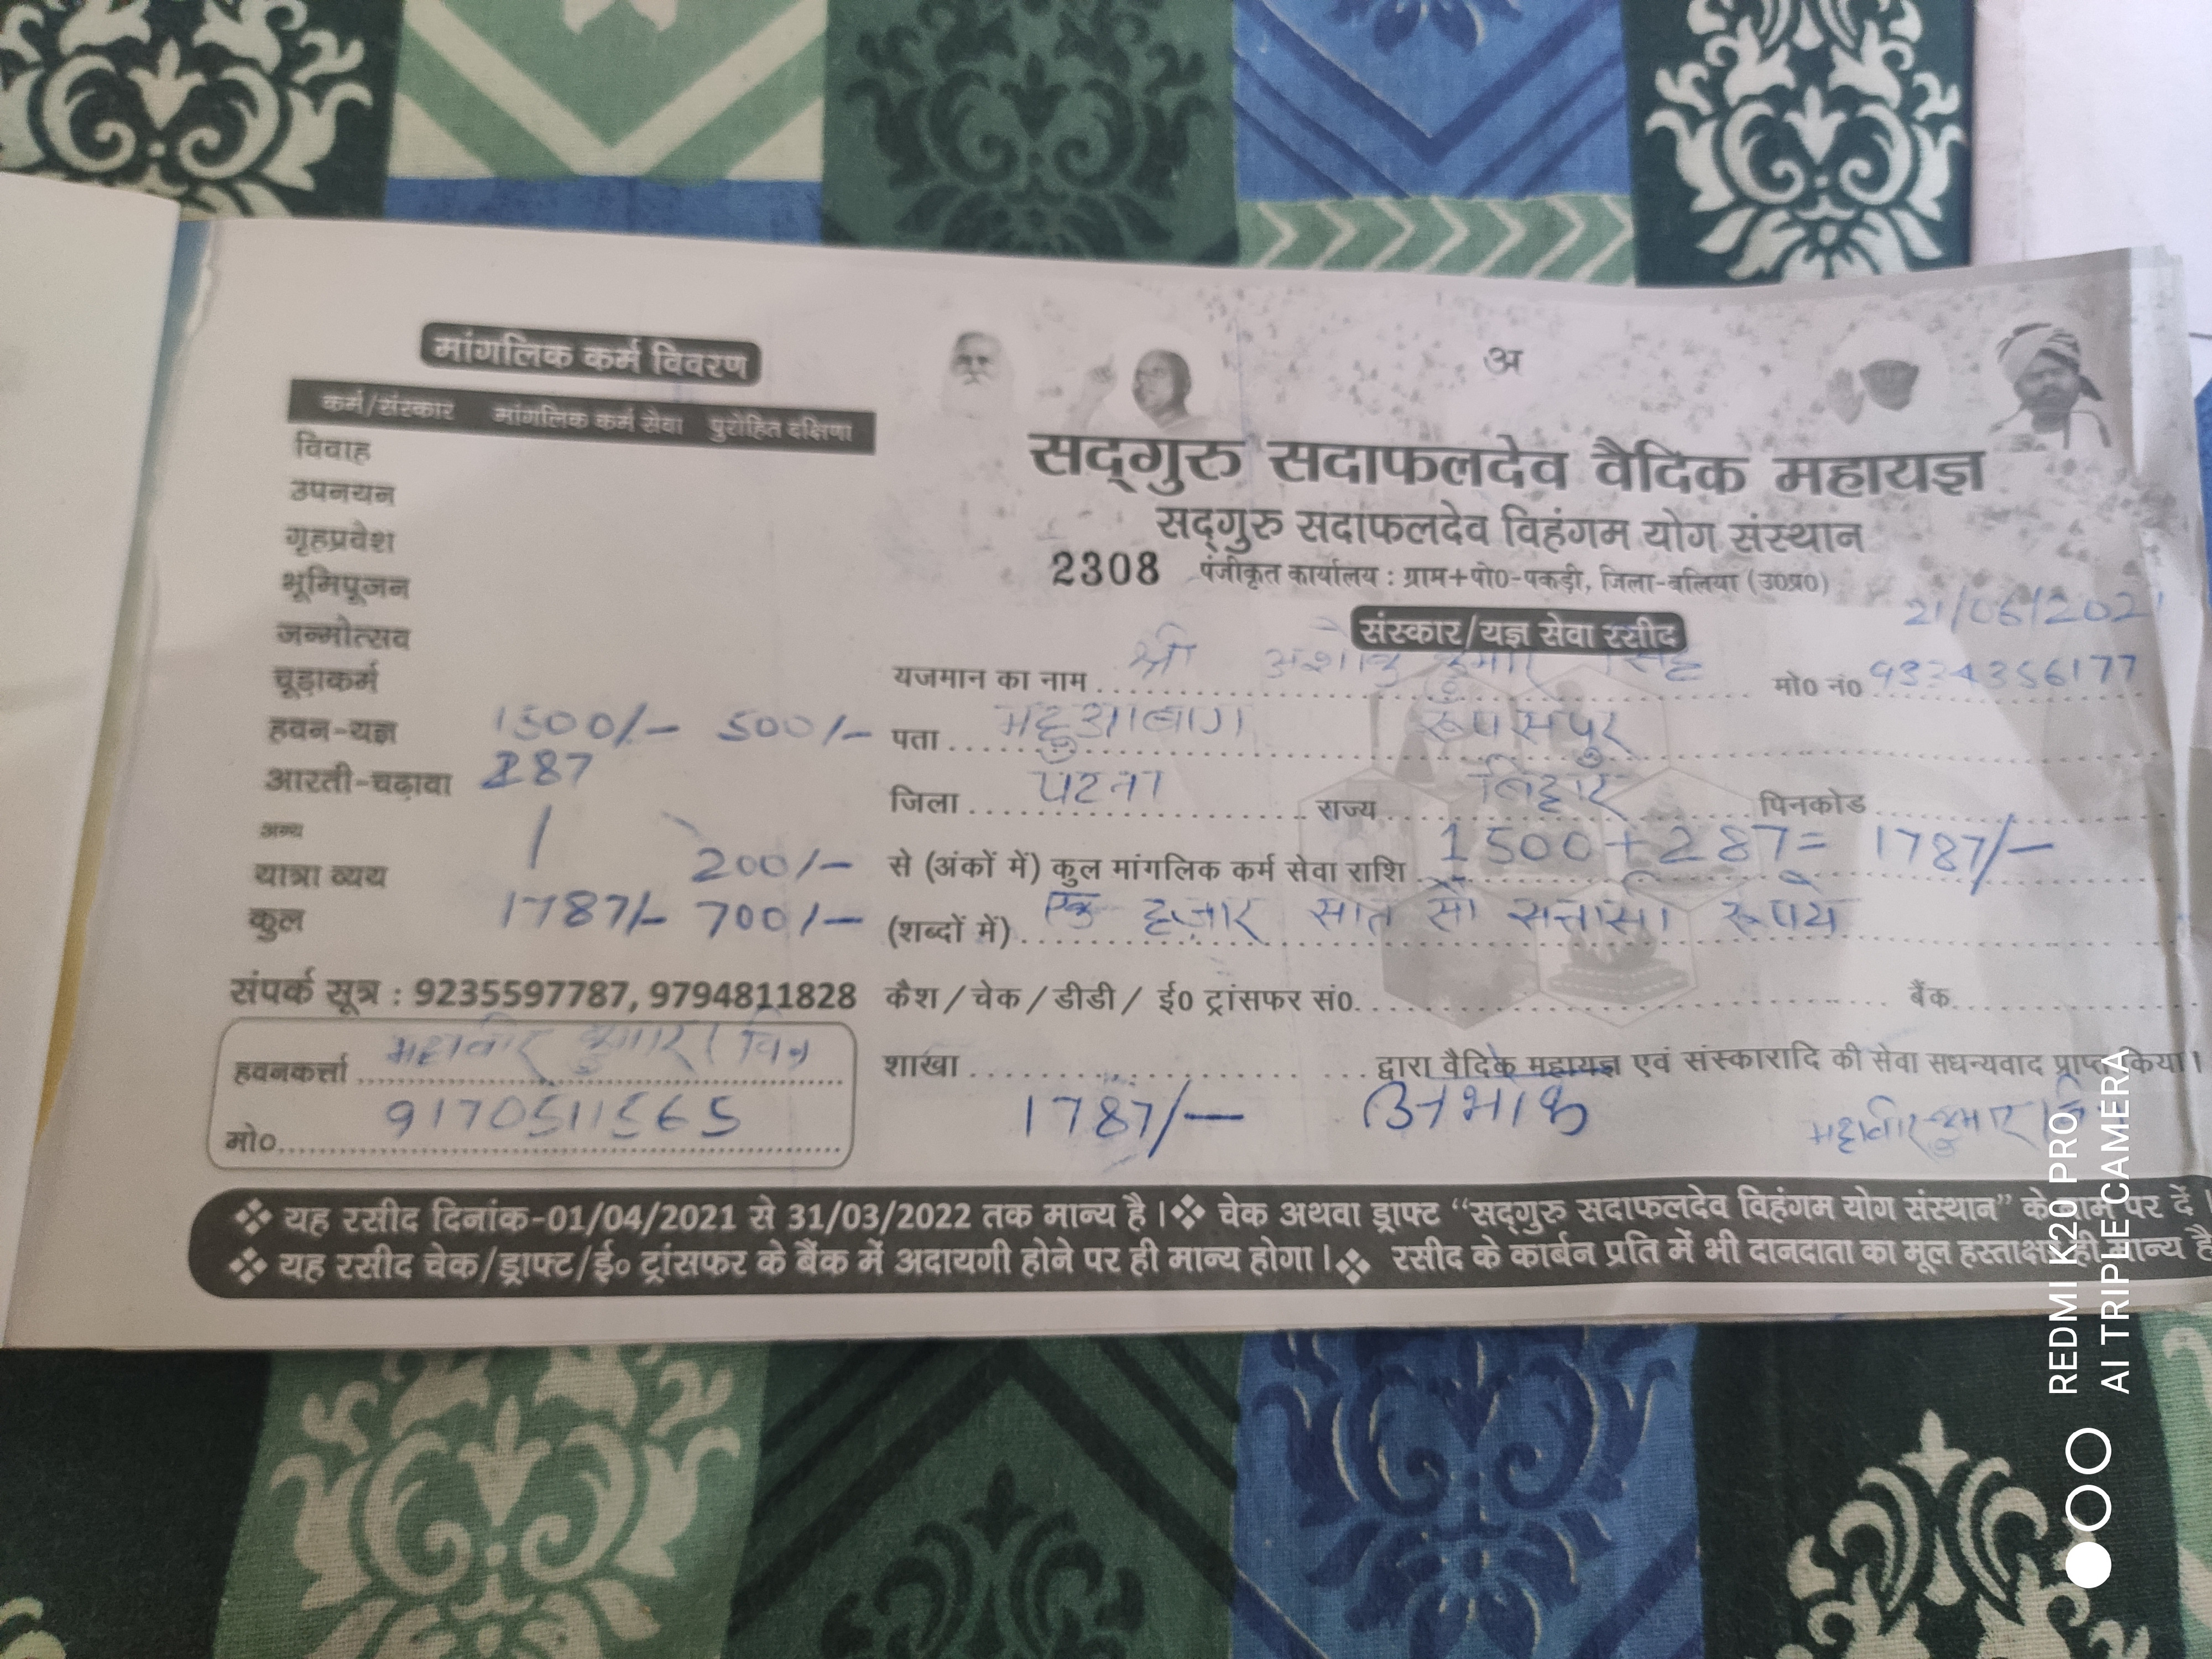 मांगलिक कर्म विवरण
कर्म/संस्कार मांगलिक कर्म सेवा पुरोहित दक्षिणा
विवाह
उपनयन
गृहप्रवेश
भूमिपूजन
जन्मोत्सव
चूड़ाकर्म
हवन-यज्ञ 1500/- 500/-
आरती-चढ़ावा 287
अन्य
यात्रा व्यय 200/-
कुल 1787/- 700/-
संपर्क सूत्र : 9235597787, 9794811828
हवनकर्त्ता महावीर कुमार
मो० 9170511565
अ
सद्गुरु सदाफलदेव वैदिक महायज्ञ
सद्गुरु सदाफलदेव विहंगम योग संस्थान
2308 पंजीकृत कार्यालय : ग्राम+पो०-पकड़ी, जिला-बलिया (उ०प्र०)
21/06/2021
संस्कार/यज्ञ सेवा रसीद
यजमान का नाम श्री अशोक कुमार सिंह मो० नं० 9334356177
पता महुआबाग रूपसपुर
जिला पटना राज्य बिहार पिनकोड
से (अंकों में) कुल मांगलिक कर्म सेवा राशि 1500+287= 1787/-
(शब्दों में) एक हजार सात सौ सत्तासी रूपये
कैश/चेक/डीडी/ ई० ट्रांसफर सं० बैंक
शाखा द्वारा वैदिक महायज्ञ एवं संस्कारादि की सेवा सधन्यवाद प्राप्त किया।
1787/- महावीर कुमार
❖ यह रसीद दिनांक-01/04/2021 से 31/03/2022 तक मान्य है।❖ चेक अथवा ड्राफ्ट “सद्गुरु सदाफलदेव विहंगम योग संस्थान” के नाम पर दें
❖ यह रसीद चेक/ड्राफ्ट/ई० ट्रांसफर के बैंक में अदायगी होने पर ही मान्य होगा।❖ रसीद के कार्बन प्रति में भी दानदाता का मूल हस्ताक्षर ही मान्य है
REDMI K20 PRO
AI TRIPLE CAMERA